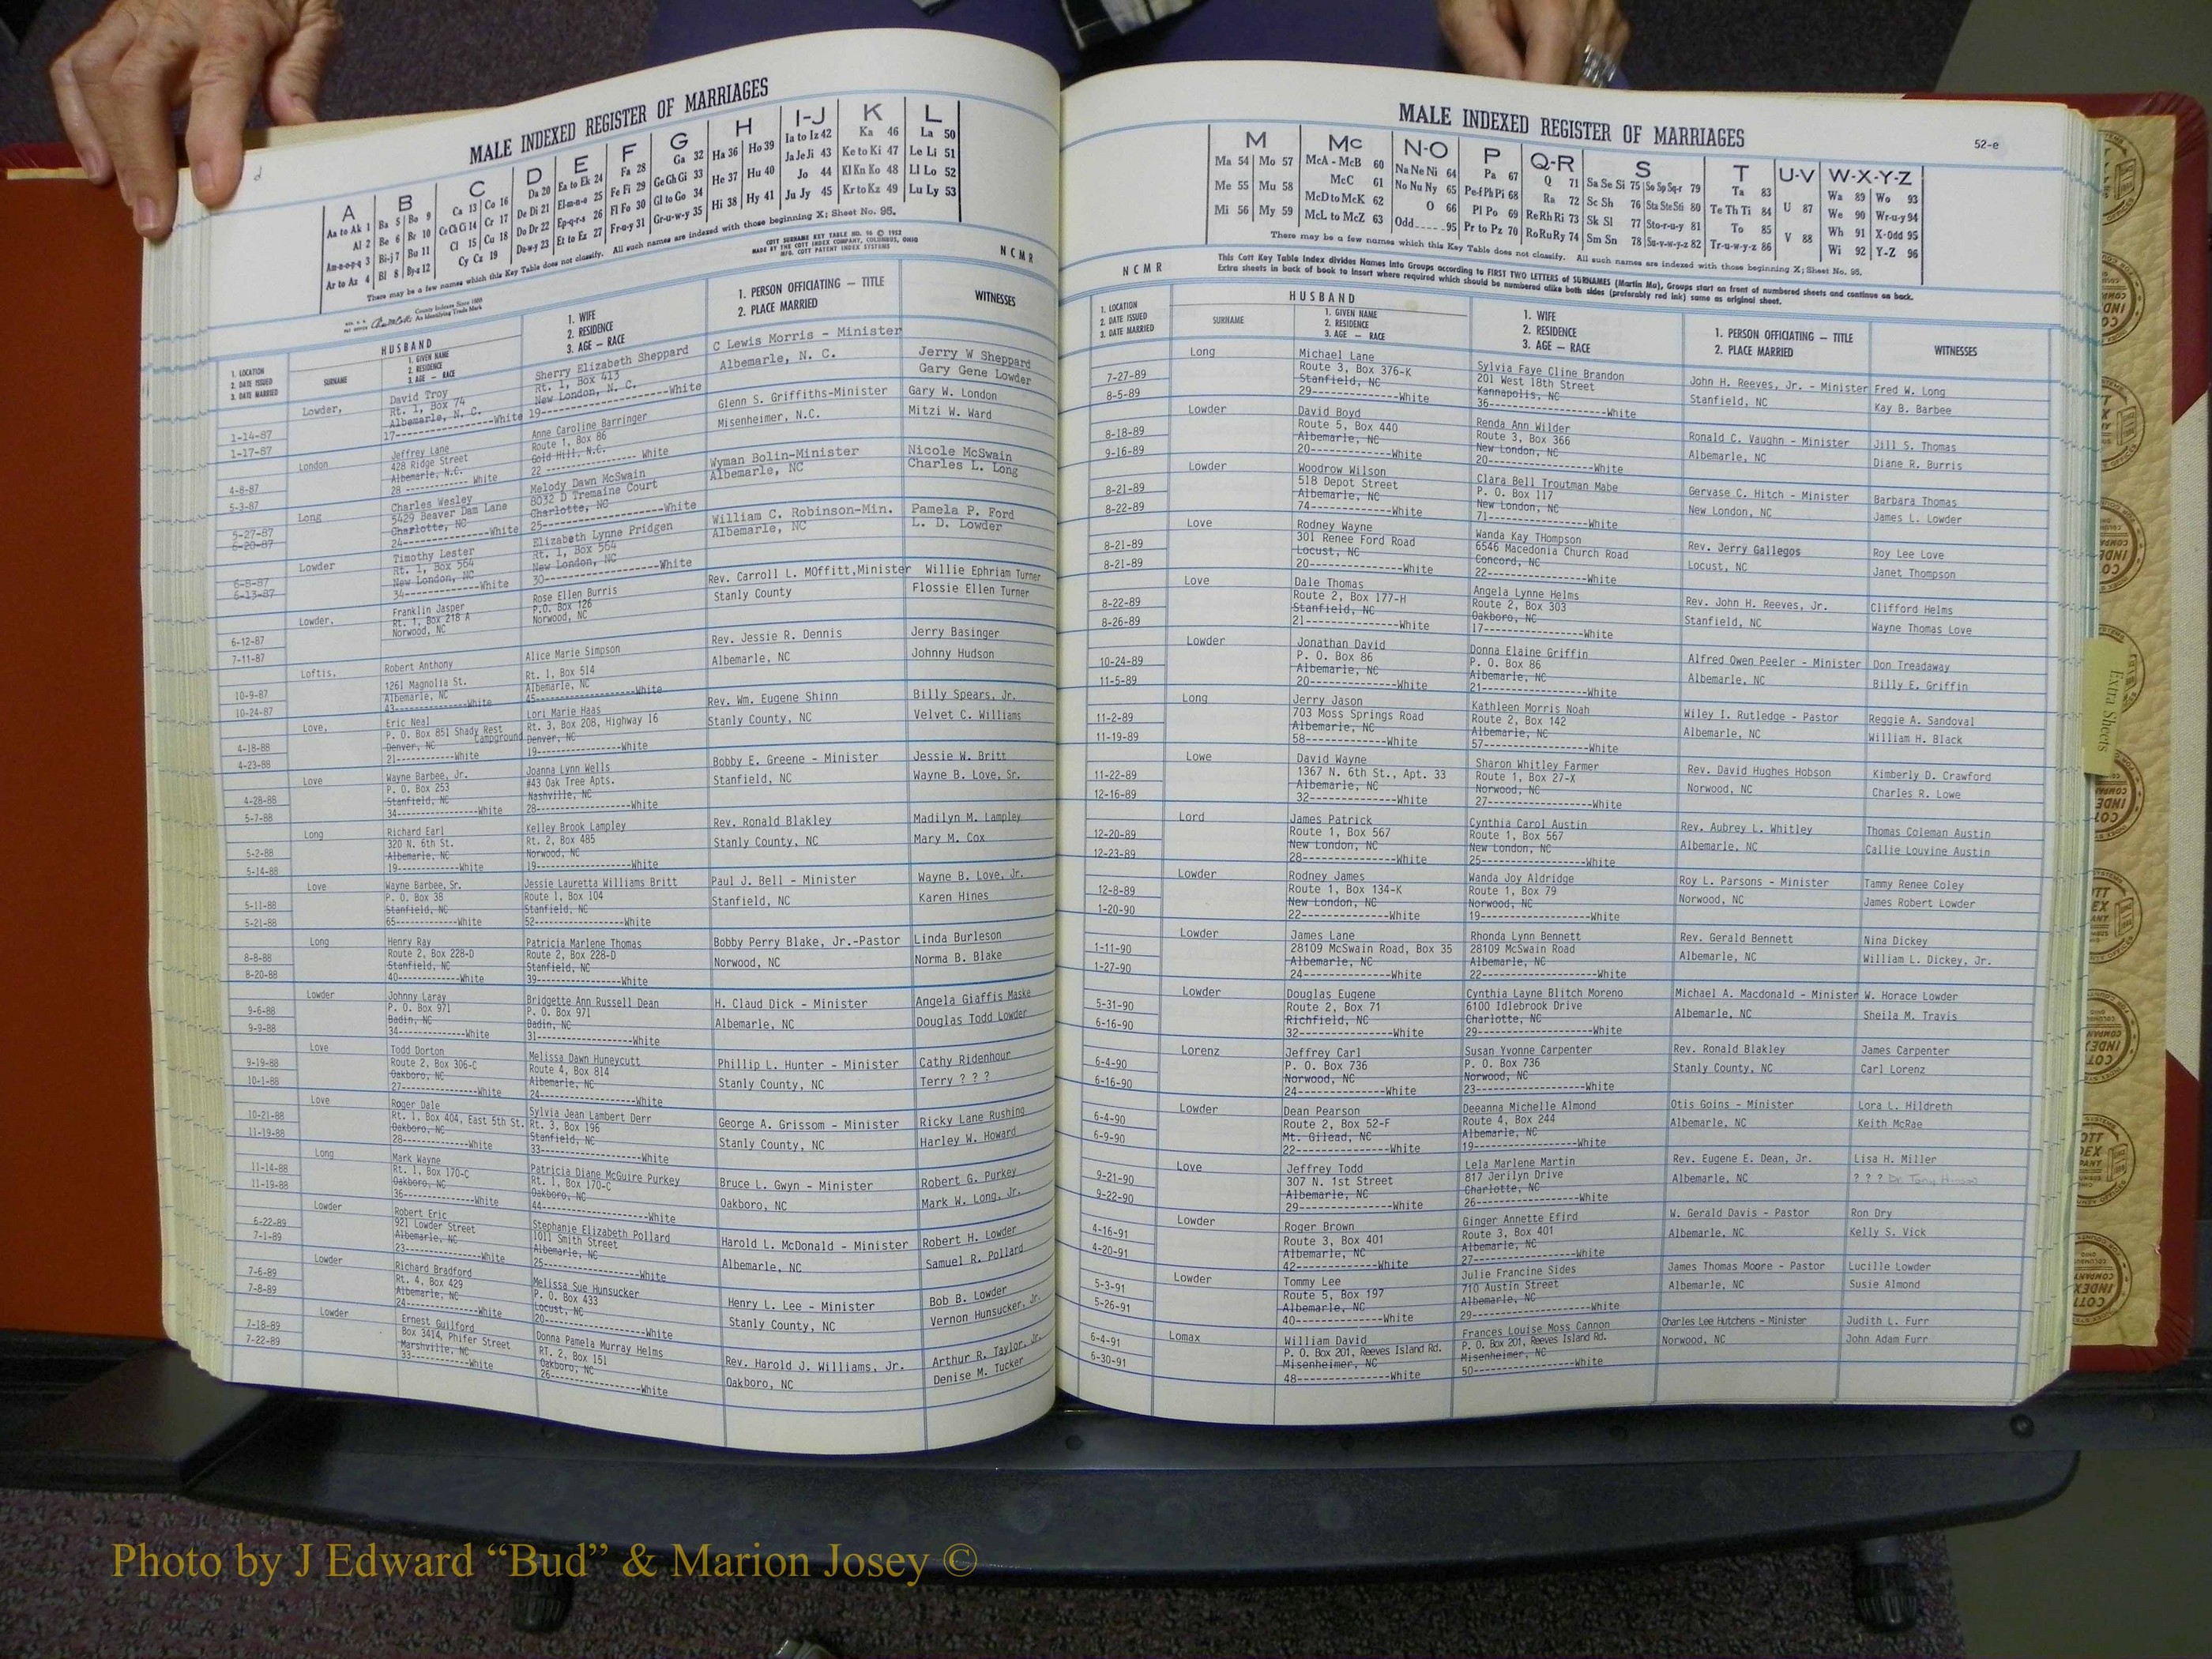 MALE INDEXED REGISTER OF MARRIAGES
A B C D E F G H I-J K L
Aa to Ak 1 Ba 5 Bo 9 Ca 13 Co 16 Da 20 Ea to Ek 24 Fa 28 Ga 32 Ha 36 Ho 39 Ia to Iz 42 Ka 46 La 50
Al 2 Be 6 Br 10 Ce Ch Ci 14 Cr 17 De Di 21 El-m-n-o 25 Fe Fi 29 Ge Gh Gi 33 He 37 Hu 40 Ja Je Ji 43 Ke to Ki 47 Le Li 51
Am-n-o-p-q 3 Bi-j 7 Bu 11 Cl 15 Cu 18 Do Dr 22 Ep-q-r-s 26 Fl Fo 30 Gl to Go 34 Hi 38 Hy 41 Jo 44 Kl Kn Ko 48 Ll Lo 52
Ar to Az 4 Bl 8 By-z 12 Cy Cz 19 Dw-y 23 Et to Ez 27 Fr-u-y 31 Gr-u-w-y 35 Ju Jy 45 Kr to Kz 49 Lu Ly 53
There may be a few names which this Key Table does not classify. All such names are indexed with those beginning X; Sheet No. 95.
COTT SURNAME KEY TABLE NO. 96 © 1952
MADE BY THE COTT INDEX COMPANY, COLUMBUS, OHIO
MFG. COTT PATENT INDEX SYSTEMS
County Indexes Since 1888
An Identifying Trade Mark
NCMR
HUSBAND
1. LOCATION
2. DATE ISSUED
3. DATE MARRIED
SURNAME
1. GIVEN NAME
2. RESIDENCE
3. AGE — RACE
1. WIFE
2. RESIDENCE
3. AGE — RACE
1. PERSON OFFICIATING — TITLE
2. PLACE MARRIED
WITNESSES
Lowder, David Troy Sherry Elizabeth Sheppard C Lewis Morris - Minister Jerry W Sheppard
Rt. 1, Box 74 Rt. 1, Box 413 Albemarle, N. C. Gary Gene Lowder
1-14-87 Albemarle, N. C. New London, N. C.
1-17-87 17-----White 19-----White
London Jeffrey Lane Anne Caroline Barringer Glenn S. Griffiths-Minister Gary W. London
428 Ridge Street Route 1, Box 86 Misenheimer, N.C. Mitzi W. Ward
4-8-87 Albemarle, N.C. Gold Hill, N.C.
5-3-87 28-----White 22-----White
Long Charles Wesley Melody Dawn McSwain Wyman Bolin-Minister Nicole McSwain
5429 Beaver Dam Lane 8032 D Tremaine Court Albemarle, NC Charles L. Long
5-27-87 Charlotte, NC Charlotte, NC
6-20-87 24-----White 25-----White
Lowder Timothy Lester Elizabeth Lynne Pridgen William C. Robinson-Min. Pamela P. Ford
Rt. 1, Box 564 Rt. 1, Box 564 Albemarle, NC L. D. Lowder
6-8-87 New London, NC New London, NC
6-13-87 34-----White 30-----White
Lowder, Franklin Jasper Rose Ellen Burris Rev. Carroll L. MOffitt,Minister Willie Ephriam Turner
6-12-87 Rt. 1, Box 218 A P.O. Box 126 Stanly County Flossie Ellen Turner
7-11-87 Norwood, NC Norwood, NC
Loftis, Robert Anthony Alice Marie Simpson Rev. Jessie R. Dennis Jerry Basinger
1261 Magnolia St. Rt. 1, Box 514 Albemarle, NC Johnny Hudson
10-9-87 Albemarle, NC Albemarle, NC
10-24-87 43-----White 45-----White
Love, Eric Neal Lori Marie Haas Rev. Wm. Eugene Shinn Billy Spears, Jr.
P. O. Box 851 Shady Rest Campground Rt. 3, Box 208, Highway 16 Stanly County, NC Velvet C. Williams
4-18-88 Denver, NC Denver, NC
4-23-88 21-----White 19-----White
Love Wayne Barbee, Jr. Joanna Lynn Wells Bobby E. Greene - Minister Jessie W. Britt
P. O. Box 253 #43 Oak Tree Apts. Stanfield, NC Wayne B. Love, Sr.
4-28-88 Stanfield, NC Nashville, NC
5-7-88 34-----White 28-----White
Long Richard Earl Kelley Brook Lampley Rev. Ronald Blakley Madilyn M. Lampley
320 N. 6th St. Rt. 2, Box 485 Stanly County, NC Mary M. Cox
5-2-88 Albemarle, NC Norwood, NC
5-14-88 19-----White 19-----White
Love Wayne Barbee, Sr. Jessie Lauretta Williams Britt Paul J. Bell - Minister Wayne B. Love, Jr.
P. O. Box 38 Route 1, Box 104 Stanfield, NC Karen Hines
5-11-88 Stanfield, NC Stanfield, NC
5-21-88 65-----White 52-----White
Long Henry Ray Patricia Marlene Thomas Bobby Perry Blake, Jr.-Pastor Linda Burleson
Route 2, Box 228-D Route 2, Box 228-D Norwood, NC Norma B. Blake
8-8-88 Stanfield, NC Stanfield, NC
8-20-88 40-----White 39-----White
Lowder Johnny Laray Bridgette Ann Russell Dean H. Claud Dick - Minister Angela Giaffis Maske
P. O. Box 971 P. O. Box 971 Albemarle, NC Douglas Todd Lowder
9-6-88 Badin, NC Badin, NC
9-9-88 34-----White 31-----White
Love Todd Dorton Melissa Dawn Huneycutt Phillip L. Hunter - Minister Cathy Ridenhour
9-19-88 Route 2, Box 306-C Route 4, Box 814 Stanly County, NC Terry ? ? ?
10-1-88 Oakboro, NC Albemarle, NC
27-----White 24-----White
Love Roger Dale Sylvia Jean Lambert Derr George A. Grissom - Minister Ricky Lane Rushing
10-21-88 Rt. 1, Box 404, East 5th St. Rt. 3, Box 196 Stanly County, NC Harley W. Howard
11-19-88 Oakboro, NC Stanfield, NC
28-----White 33-----White
Long Mark Wayne Patricia Diane McGuire Purkey Bruce L. Gwyn - Minister Robert G. Purkey
11-14-88 Rt. 1, Box 170-C Rt. 1, Box 170-C Oakboro, NC Mark W. Long, Jr.
11-19-88 Oakboro, NC Oakboro, NC
36-----White 44-----White
Lowder Robert Eric Stephanie Elizabeth Pollard Harold L. McDonald - Minister Robert H. Lowder
6-22-89 921 Lowder Street 1011 Smith Street Albemarle, NC Samuel R. Pollard
7-1-89 Albemarle, NC Albemarle, NC
23-----White 25-----White
Lowder Richard Bradford Melissa Sue Hunsucker Henry L. Lee - Minister Bob B. Lowder
7-6-89 Rt. 4, Box 429 P. O. Box 433 Stanly County, NC Vernon Hunsucker, Jr.
7-8-89 Albemarle, NC Locust, NC
24-----White 20-----White
Lowder Ernest Guilford Donna Pamela Murray Helms Rev. Harold J. Williams, Jr. Arthur R. Taylor, Jr.
7-18-89 Box 3414, Phifer Street RT. 2, Box 151 Oakboro, NC Denise M. Tucker
7-22-89 Marshville, NC Oakboro, NC
33-----White 26-----White
MALE INDEXED REGISTER OF MARRIAGES
52-e
M Mc N-O P Q-R S T U-V W-X-Y-Z
Ma 54 Mo 57 McA - McB 60 Na Ne Ni 64 Pa 67 Q 71 Sa Se Si 75 So Sp Sq-r 79 Ta 83 U 87 Wa 89 Wo 93
Me 55 Mu 58 McC 61 No Nu Ny 65 Pe-f Ph Pi 68 Ra 72 Sc Sh 76 Sta Ste Sti 80 Te Th Ti 84 V 88 We 90 Wr-u-y 94
Mi 56 My 59 McD to McK 62 O 66 Pl Po 69 Re Rh Ri 73 Sk Sl 77 Sto-r-u-y 81 To 85 Wh 91 X-Odd 95
McL to McZ 63 Odd 95 Pr to Pz 70 Ro Ru Ry 74 Sm Sn 78 Su-v-w-y-z 82 Tr-u-w-y-z 86 Wi 92 Y-Z 96
There may be a few names which this Key Table does not classify. All such names are indexed with those beginning X; Sheet No. 95.
This Cott Key Table Index divides Names into Groups according to FIRST TWO LETTERS of SURNAMES (Martin Ma), Groups start on front of numbered sheets and continue on back.
Extra sheets in back of book to insert where required which should be numbered alike both sides (preferably red ink) same as original sheet.
NCMR
HUSBAND
1. LOCATION
2. DATE ISSUED
3. DATE MARRIED
SURNAME
1. GIVEN NAME
2. RESIDENCE
3. AGE — RACE
1. WIFE
2. RESIDENCE
3. AGE — RACE
1. PERSON OFFICIATING — TITLE
2. PLACE MARRIED
WITNESSES
Long Michael Lane Sylvia Faye Cline Brandon John H. Reeves, Jr. - Minister Fred W. Long
7-27-89 Route 3, Box 376-K 201 West 18th Street Stanfield, NC Kay B. Barbee
8-5-89 Stanfield, NC Kannapolis, NC
29-----White 36-----White
Lowder David Boyd Renda Ann Wilder Ronald C. Vaughn - Minister Jill S. Thomas
8-18-89 Route 5, Box 440 Route 3, Box 366 Albemarle, NC Diane R. Burris
9-16-89 Albemarle, NC New London, NC
20-----White 20-----White
Lowder Woodrow Wilson Clara Bell Troutman Mabe Gervase C. Hitch - Minister Barbara Thomas
8-21-89 518 Depot Street P. O. Box 117 New London, NC James L. Lowder
8-22-89 Albemarle, NC New London, NC
74-----White 71-----White
Love Rodney Wayne Wanda Kay THompson Rev. Jerry Gallegos Roy Lee Love
8-21-89 301 Renee Ford Road 6546 Macedonia Church Road Locust, NC Janet Thompson
8-21-89 Locust, NC Concord, NC
20-----White 22-----White
Love Dale Thomas Angela Lynne Helms Rev. John H. Reeves, Jr. Clifford Helms
8-22-89 Route 2, Box 177-H Route 2, Box 303 Stanfield, NC Wayne Thomas Love
8-26-89 Stanfield, NC Oakboro, NC
21-----White 17-----White
Lowder Jonathan David Donna Elaine Griffin Alfred Owen Peeler - Minister Don Treadaway
10-24-89 P. O. Box 86 P. O. Box 86 Albemarle, NC Billy E. Griffin
11-5-89 Albemarle, NC Albemarle, NC
20-----White 21-----White
Long Jerry Jason Kathleen Morris Noah Wiley I. Rutledge - Pastor Reggie A. Sandoval
11-2-89 703 Moss Springs Road Route 2, Box 142 Albemarle, NC William H. Black
11-19-89 Albemarle, NC Albemarle, NC
58-----White 57-----White
Lowe David Wayne Sharon Whitley Farmer Rev. David Hughes Hobson Kimberly D. Crawford
11-22-89 1367 N. 6th St., Apt. 33 Route 1, Box 27-X Norwood, NC Charles R. Lowe
12-16-89 Albemarle, NC Norwood, NC
32-----White 27-----White
Lord James Patrick Cynthia Carol Austin Rev. Aubrey L. Whitley Thomas Coleman Austin
12-20-89 Route 1, Box 567 Route 1, Box 567 Albemarle, NC Callie Louvine Austin
12-23-89 New London, NC New London, NC
28-----White 25-----White
Lowder Rodney James Wanda Joy Aldridge Roy L. Parsons - Minister Tammy Renee Coley
12-8-89 Route 1, Box 134-K Route 1, Box 79 Norwood, NC James Robert Lowder
1-20-90 New London, NC Norwood, NC
22-----White 19-----White
Lowder James Lane Rhonda Lynn Bennett Rev. Gerald Bennett Nina Dickey
1-11-90 28109 McSwain Road, Box 35 28109 McSwain Road Albemarle, NC William L. Dickey, Jr.
1-27-90 Albemarle, NC Albemarle, NC
24-----White 22-----White
Lowder Douglas Eugene Cynthia Layne Blitch Moreno Michael A. Macdonald - Minister W. Horace Lowder
5-31-90 Route 2, Box 71 6100 Idlebrook Drive Albemarle, NC Sheila M. Travis
6-16-90 Richfield, NC Charlotte, NC
32-----White 29-----White
Lorenz Jeffrey Carl Susan Yvonne Carpenter Rev. Ronald Blakley James Carpenter
6-4-90 P. O. Box 736 P. O. Box 736 Stanly County, NC Carl Lorenz
6-16-90 Norwood, NC Norwood, NC
24-----White 23-----White
Lowder Dean Pearson Deeanna Michelle Almond Otis Goins - Minister Lora L. Hildreth
6-4-90 Route 2, Box 52-F Route 4, Box 244 Albemarle, NC Keith McRae
6-9-90 Mt. Gilead, NC Albemarle, NC
22-----White 19-----White
Love Jeffrey Todd Lela Marlene Martin Rev. Eugene E. Dean, Jr. Lisa H. Miller
9-21-90 307 N. 1st Street 817 Jerilyn Drive Albemarle, NC ? ? ? Dr. Tony
9-22-90 Albemarle, NC Charlotte, NC
29-----White 26-----White
Lowder Roger Brown Ginger Annette Efird W. Gerald Davis - Pastor Ron Dry
4-16-91 Route 3, Box 401 Route 3, Box 401 Albemarle, NC Kelly S. Vick
4-20-91 Albemarle, NC Albemarle, NC
42-----White 27-----White
Lowder Tommy Lee Julie Francine Sides James Thomas Moore - Pastor Lucille Lowder
5-3-91 Route 5, Box 197 710 Austin Street Albemarle, NC Susie Almond
5-26-91 Albemarle, NC Albemarle, NC
40-----White 29-----White
Lomax William David Frances Louise Moss Cannon Charles Lee Hutchens - Minister Judith L. Furr
6-4-91 P. O. Box 201, Reeves Island Rd. P. O. Box 201, Reeves Island Rd. Norwood, NC John Adam Furr
6-30-91 Misenheimer, NC Misenheimer, NC
48-----White 50-----White
Extra Sheets
Photo by J Edward “Bud” & Marion Josey ©